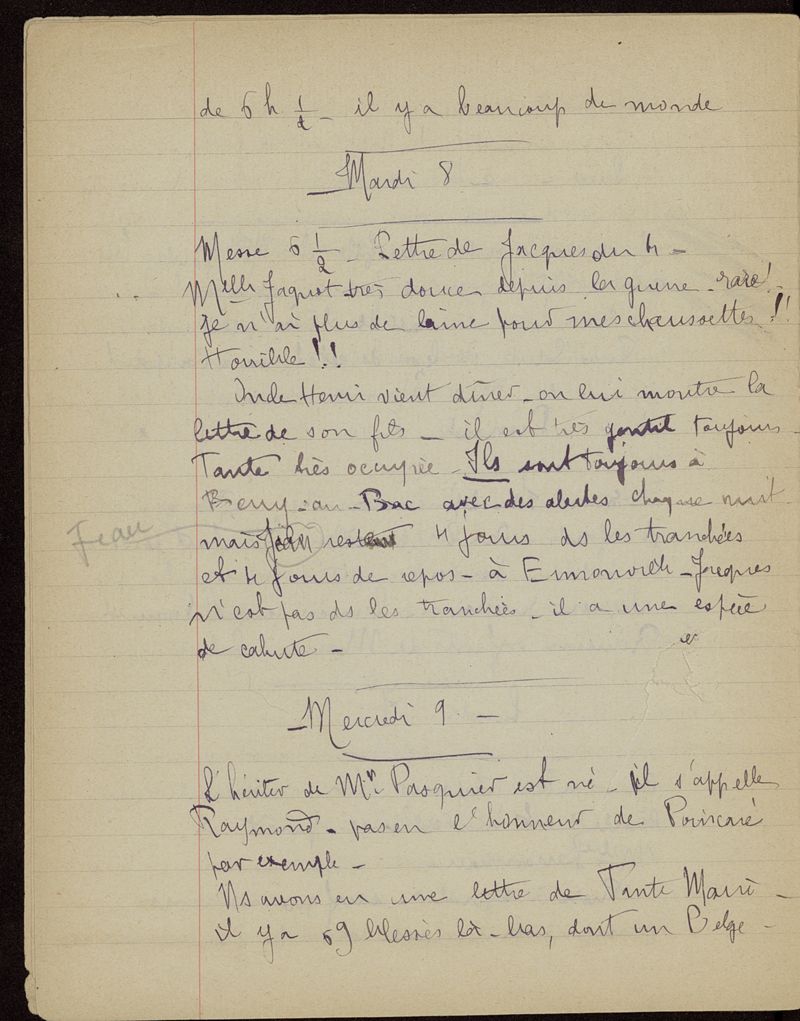 de 6 h 1/2 - il y a beaucoup de monde
Mardi 8
Messe 6 1/2 - Lettre de Jacques du 4 -
Melle Jaquot très douce depuis la guerre - rare! -
je n'ai plus de laine pour mes chaussettes!!
Horrible!!
Oncle Henri vient dîner - on lui montre la
lettre de son fils - il est très gentil toujours -
Tante très occupée - Ils sont toujours à
Berry-au-Bac avec des alertes chaque nuit
Jean
mais Jean restent 4 jours ds les tranchées
et 4 jours de repos - à - Jacques
n'est pas ds les tranchées - il a une espèce
de cahute -
- Mercredi 9 -
L'héritier de Mr Pasquier est né - il s'appelle
Raymond - pas en l'honneur de Poincaré
par exemple -
Ns avons eu une lettre de Tante Marie -
il y a 69 blessés là-bas, dont un Belge -